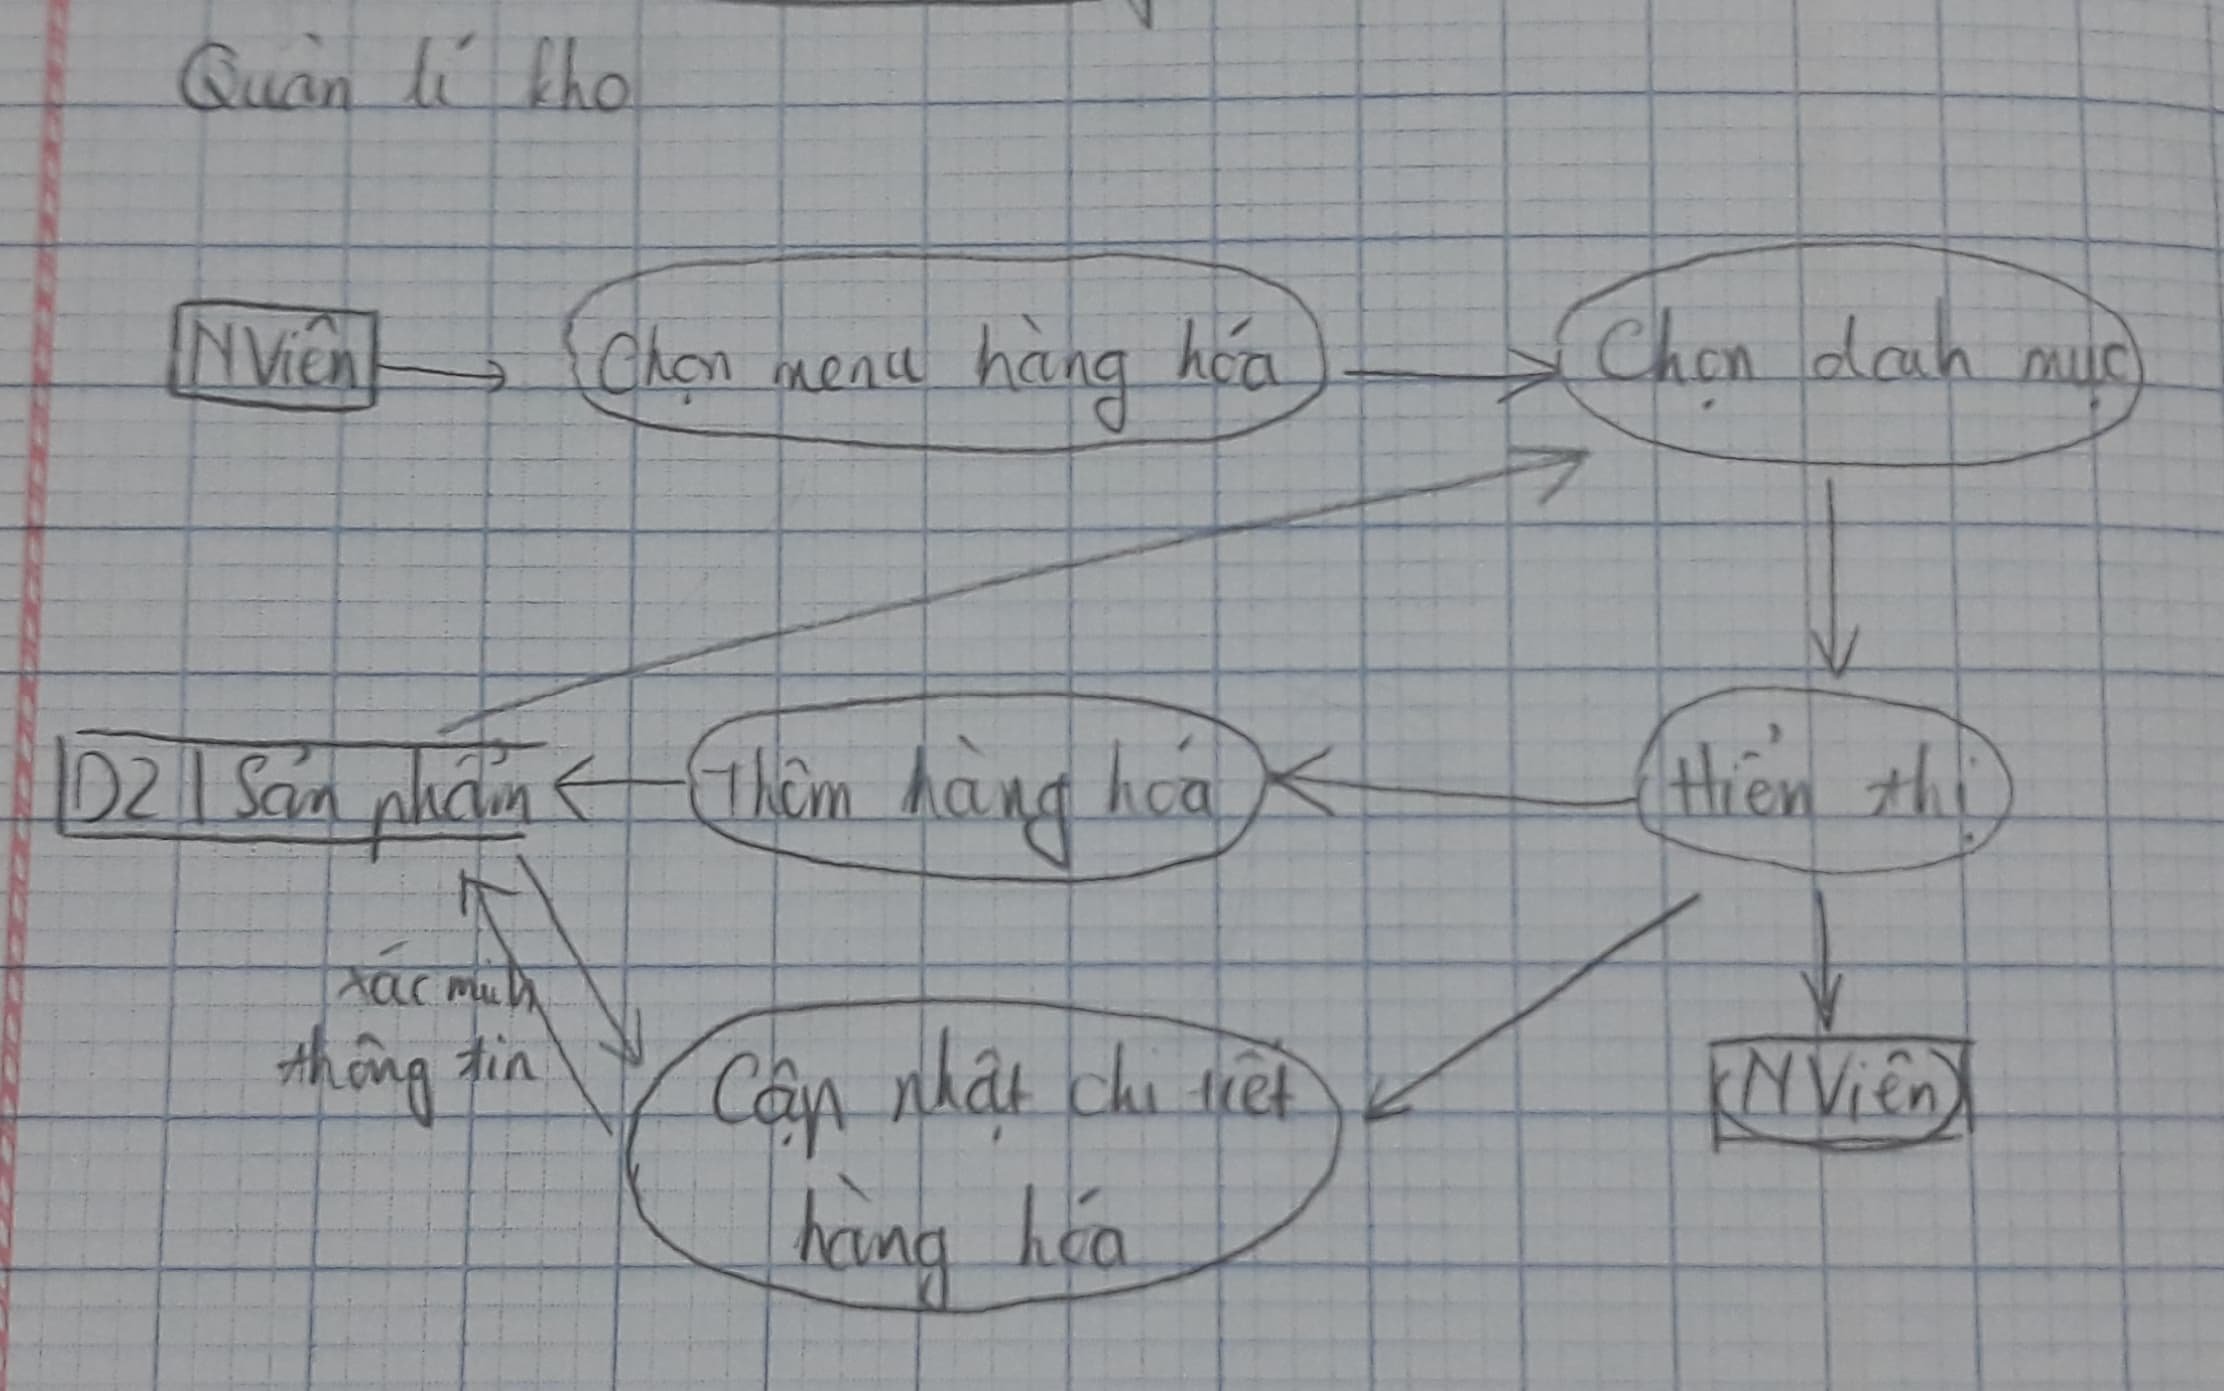 Quản lí kho
NViên
Chọn menu hàng hóa
Chọn danh mục
D2 | Sản phẩm
Thêm hàng hóa
Hiển thị
xác minh
thông tin
Cập nhật chi tiết
hàng hóa
NViên